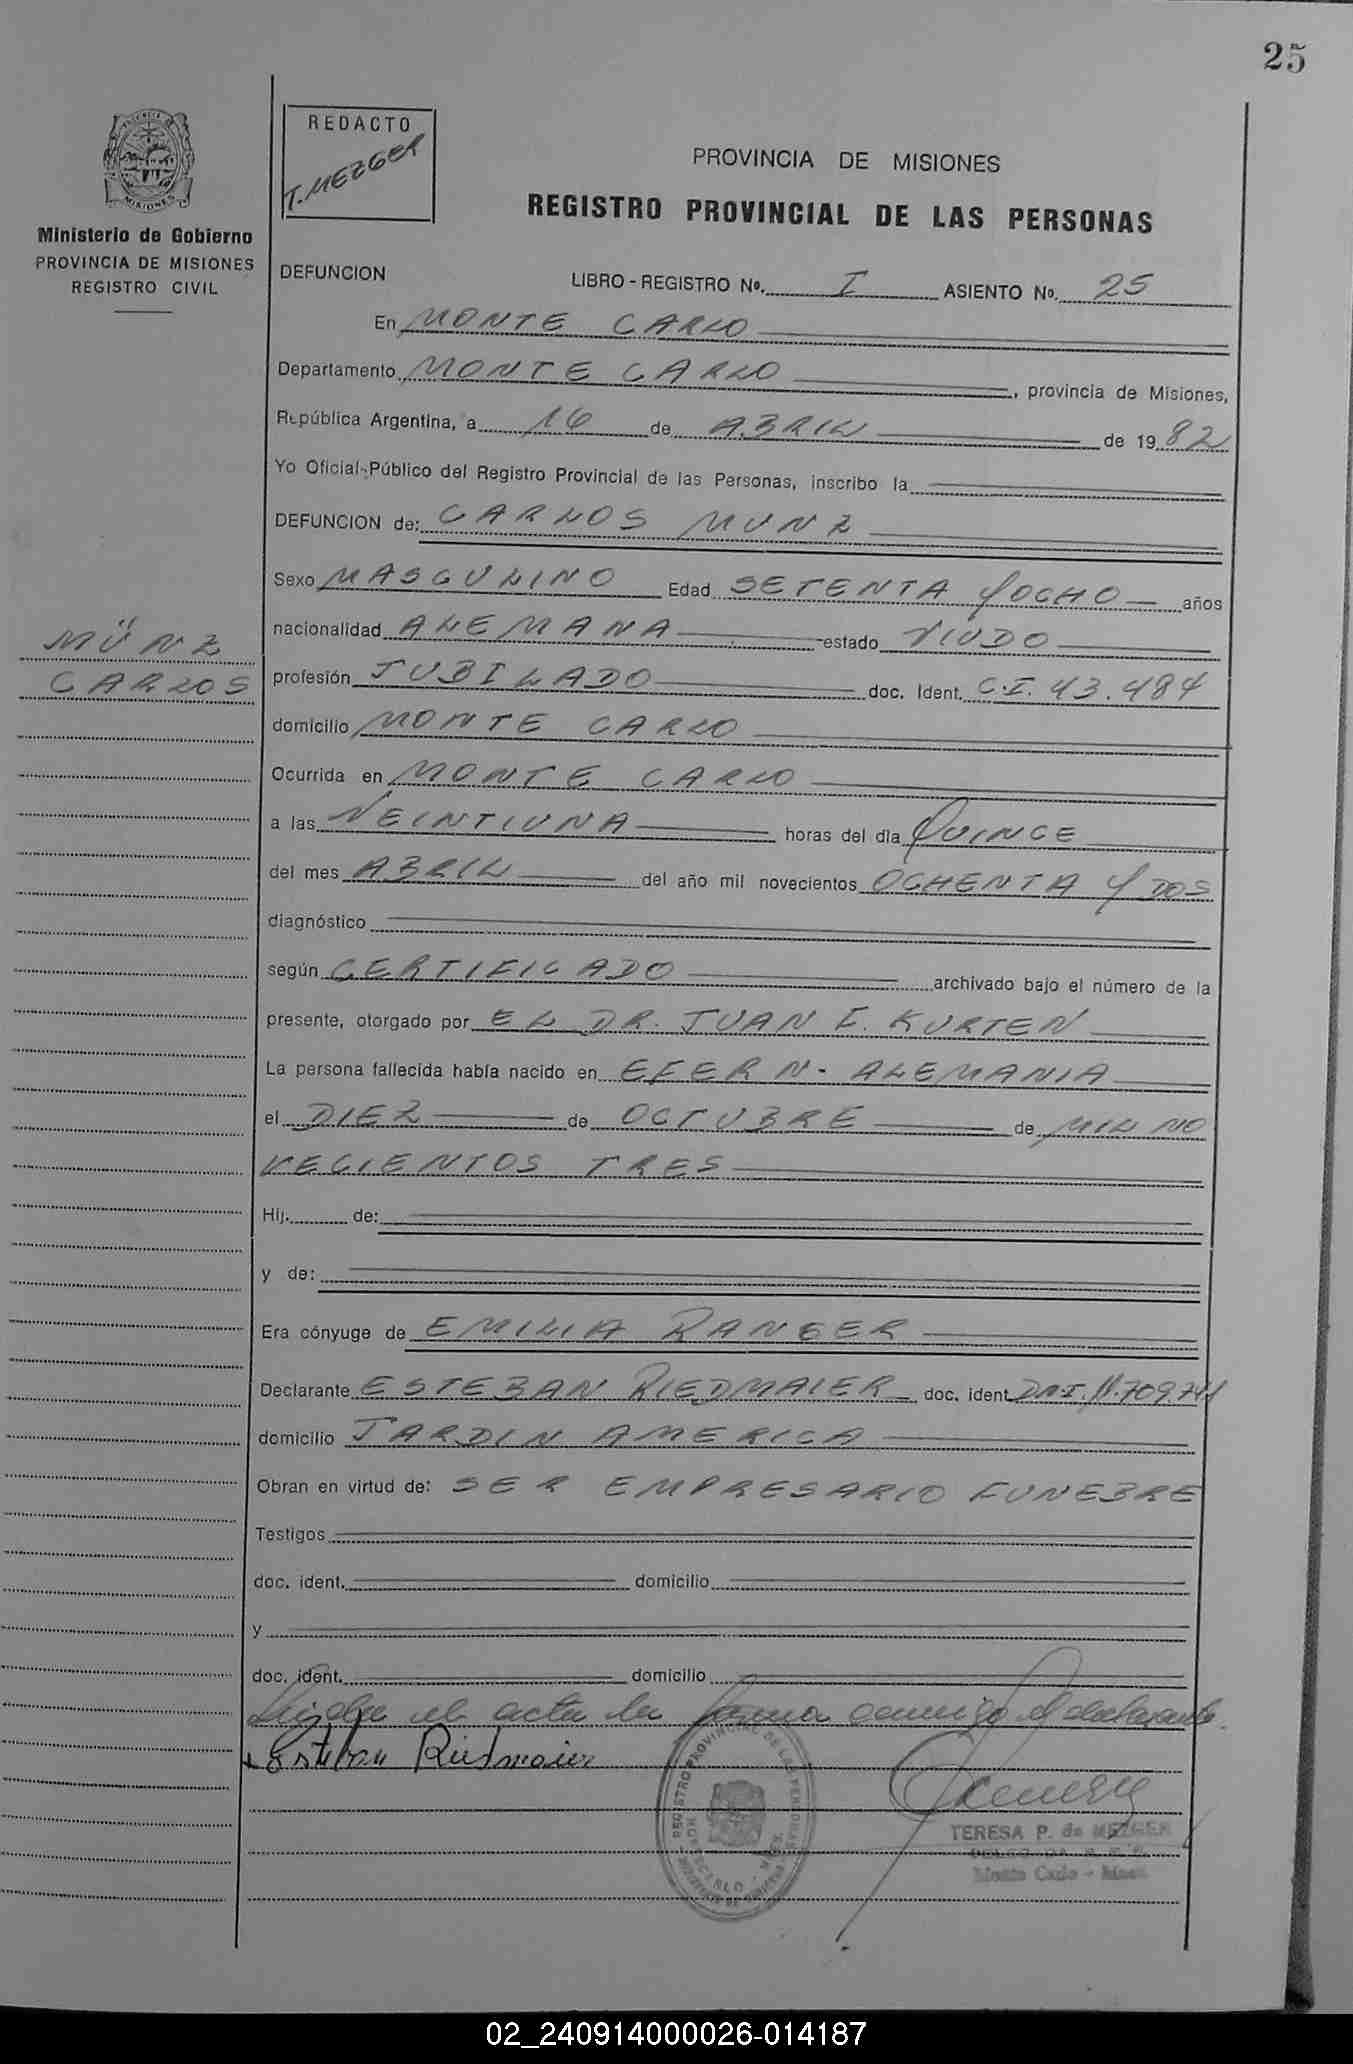 25
REDACTO
T. MEZGER
PROVINCIA DE MISIONES
REGISTRO PROVINCIAL DE LAS PERSONAS
MISIONES
Ministerio de Gobierno
PROVINCIA DE MISIONES
REGISTRO CIVIL
DEFUNCION LIBRO - REGISTRO Nº. I ASIENTO Nº. 25
En MONTE CARLO
Departamento MONTE CARLO, provincia de Misiones,
República Argentina, a 16 de ABRIL de 1982
Yo Oficial Público del Registro Provincial de las Personas, inscribo la
DEFUNCION de: CARLOS MUNZ
Sexo MASCULINO Edad SETENTA Y OCHO años
MÜNZ
CARLOS
nacionalidad ALEMANA estado VIUDO
profesión JUBILADO doc. Ident. C.I. 43.484
domicilio MONTE CARLO
Ocurrida en MONTE CARLO
a las VEINTIUNA horas del día QUINCE
del mes ABRIL del año mil novecientos OCHENTA Y DOS
diagnóstico
según CERTIFICADO archivado bajo el número de la
presente, otorgado por EL DR. JUAN E. KURTEN
La persona fallecida había nacido en EFERN - ALEMANIA
el DIEZ de OCTUBRE de MIL NO
VECIENTOS TRES
Hij. de:
y de:
Era cónyuge de EMILIA RANGER
Declarante ESTEBAN RIEDMAIER doc. ident. D.N.I. 11.709.741
domicilio JARDIN AMERICA
Obran en virtud de: SER EMPRESARIO FUNEBRE
Testigos
doc. ident. domicilio
y
doc. ident. domicilio
el acta la firma conmigo el declarante.
Esteban Riedmaier
REGISTRO PROVINCIAL DE LAS PERSONAS
TERESA P. de MEZGER
Monte Carlo - Mnes.
02_240914000026-014187